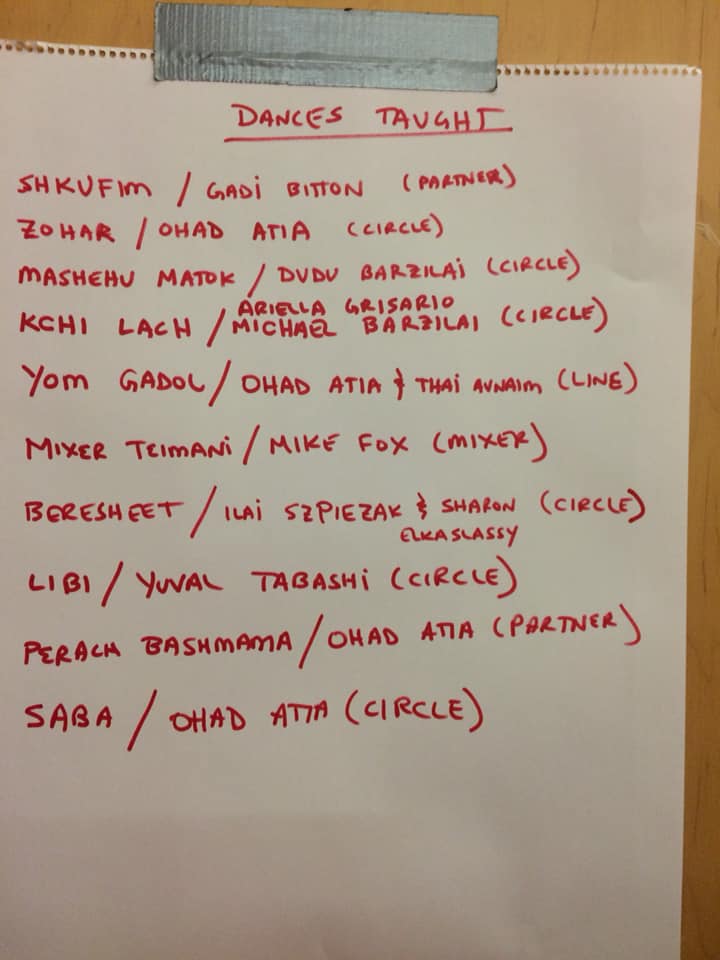 DANCES TAUGHT
SHKUFIM / GADI BITTON (PARTNER)
ZOHAR / OHAD ATIA (CIRCLE)
MASHEHU MATOK / DUDU BARZILAI (CIRCLE)
KCHI LACH / ARIELLA GRISARIO
MICHAEL BARZILAI (CIRCLE)
YOM GADOL / OHAD ATIA & THAI AVNAIM (LINE)
MIXER TEIMANI / MIKE FOX (MIXER)
BERESHEET / ILAI SZPIEZAK & SHARON (CIRCLE)
ELKASLASSY
LIBI / YUVAL TABASHI (CIRCLE)
PERACH BASHMAMA / OHAD ATIA (PARTNER)
SABA / OHAD ATIA (CIRCLE)